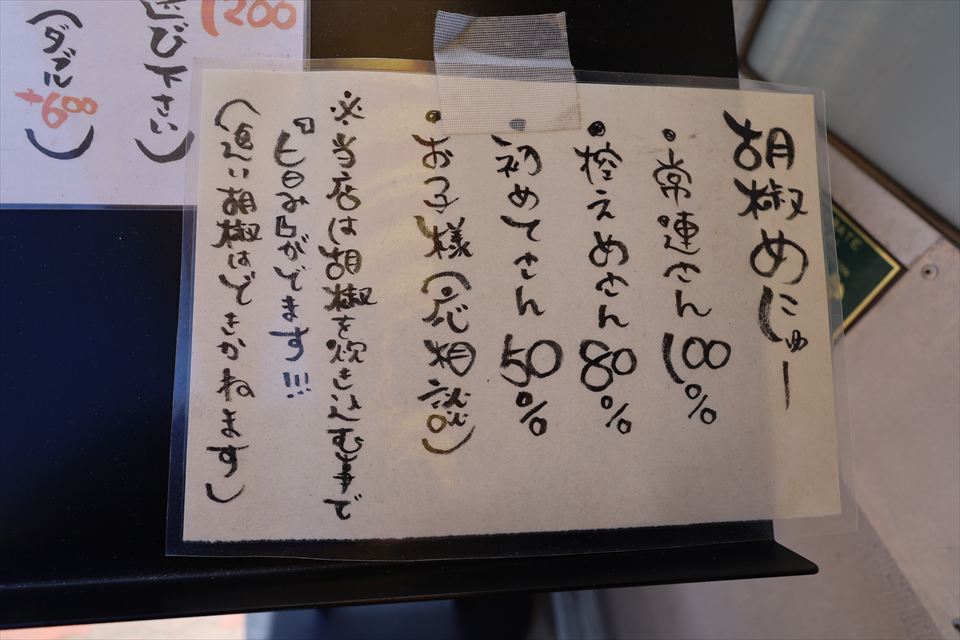 胡椒めにゅー
・常連さん 100%
・控えめさん 80%
・初めてさん 50%
・お子様(応相談)
※当店は胡椒を炊き込む事で
『旨み』がでます!!!
(追い胡椒はできかねます)
1200
び下さい)
(ダブル
+600)